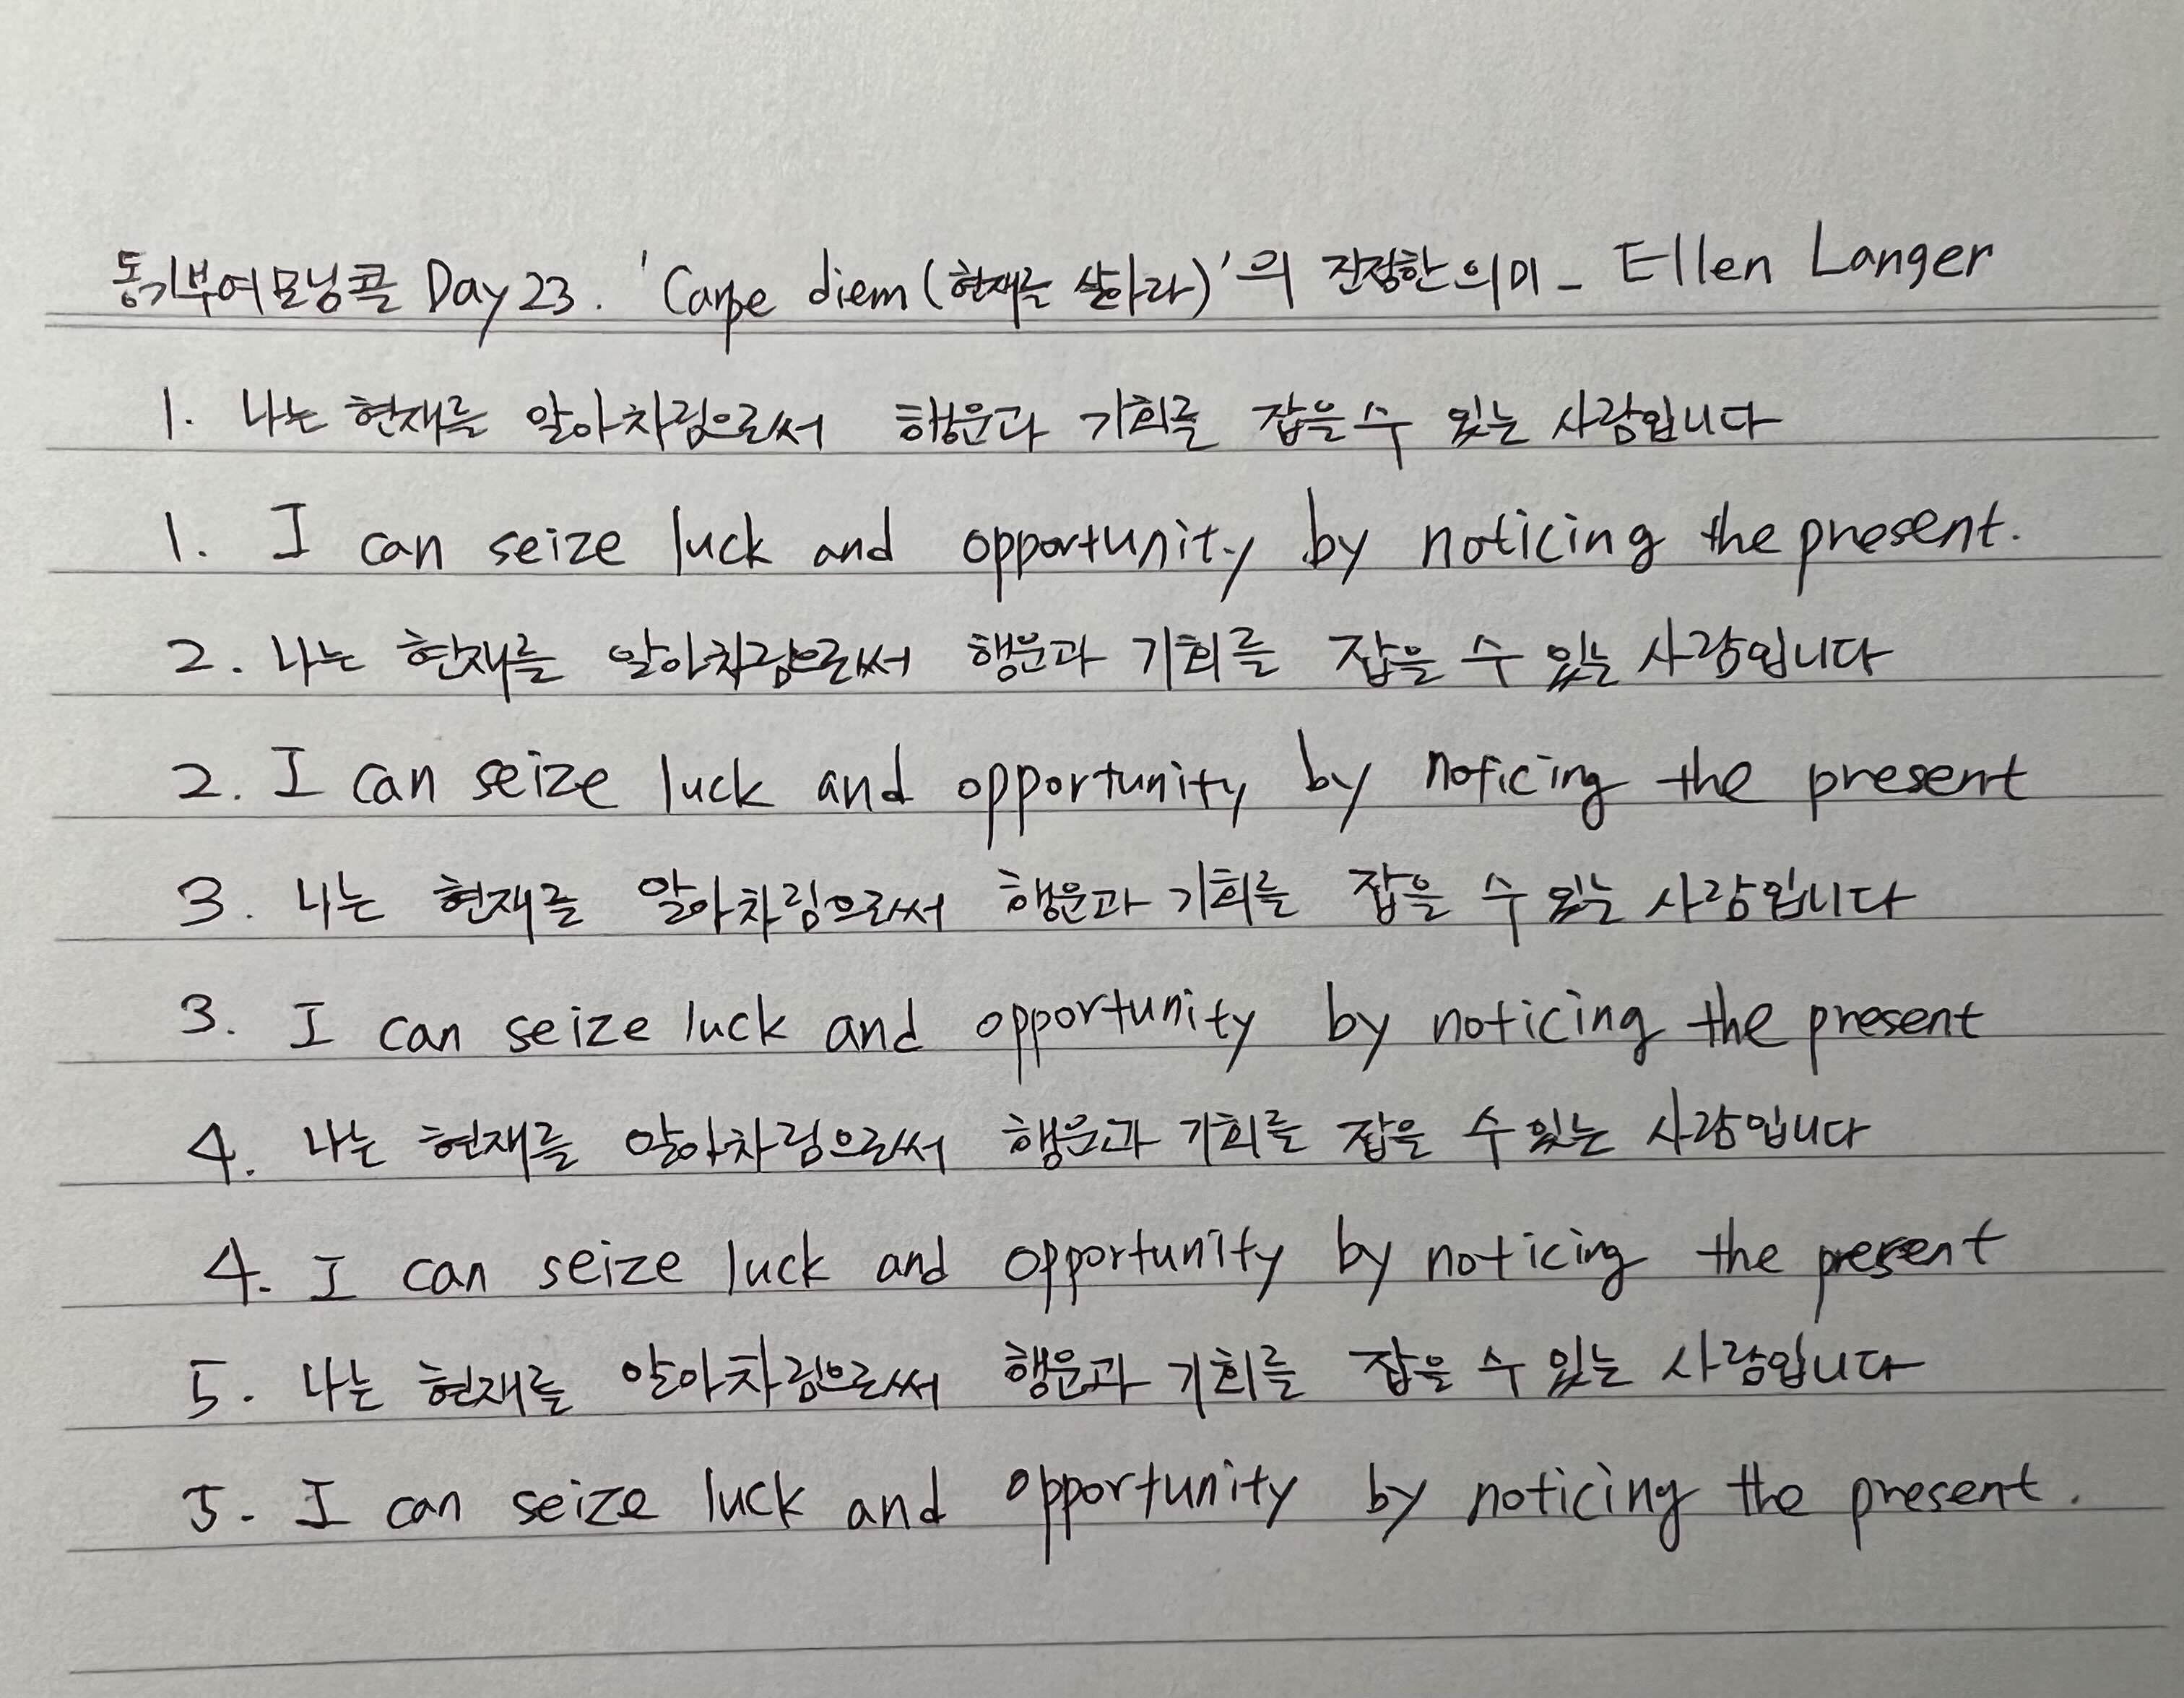 동기부여 모닝콜 Day 23. 'Carpe diem (현재를 살아라)'의 진정한 의미 - Ellen Langer
1. 나는 현재를 알아차림으로써 행운과 기회를 잡을 수 있는 사람입니다
1. I can seize luck and opportunity by noticing the present.
2. 나는 현재를 알아차림으로써 행운과 기회를 잡을 수 있는 사람입니다
2. I can seize luck and opportunity by noticing the present
3. 나는 현재를 알아차림으로써 행운과 기회를 잡을 수 있는 사람입니다
3. I can seize luck and opportunity by noticing the present
4. 나는 현재를 알아차림으로써 행운과 기회를 잡을 수 있는 사람입니다
4. I can seize luck and opportunity by noticing the present
5. 나는 현재를 알아차림으로써 행운과 기회를 잡을 수 있는 사람입니다
5. I can seize luck and opportunity by noticing the present.